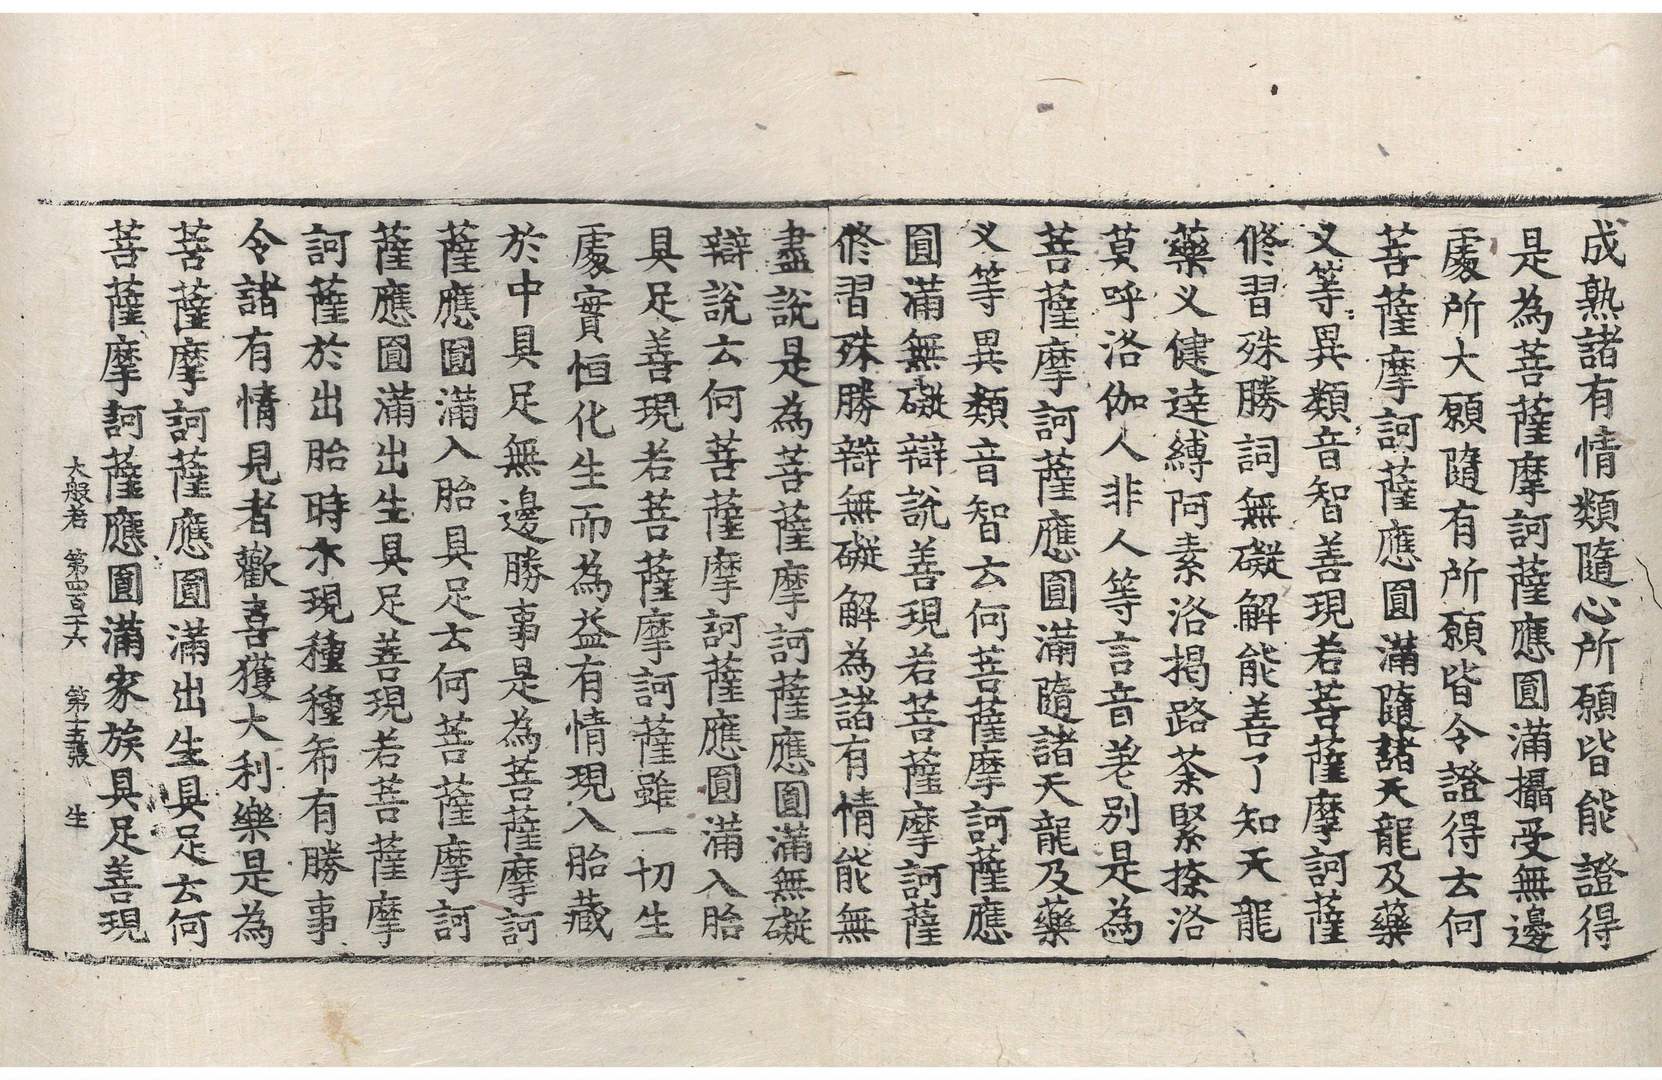 成熟諸有情類隨心所願皆能證得
是為菩薩摩訶薩應圓滿攝受無邊
處所大願隨有所願皆令證得云何
菩薩摩訶薩應圓滿隨諸天龍及藥
义等異類音智善現若菩薩摩訶薩
修習殊勝詞無礙解能善了知天龍
藥义健達縛阿素洛揭路荼緊捺洛
莫呼洛伽人非人等言音差別是為
菩薩摩訶薩應圓滿隨諸天龍及藥
义等異類音智云何菩薩摩訶薩應
圓滿無礙辯說善現若菩薩摩訶薩
修習殊勝辯無礙解為諸有情能無
盡說是為菩薩摩訶薩應圓滿無礙
辯說云何菩薩摩訶薩應圓滿入胎
具足善現若菩薩摩訶薩雖一切生
處實恒化生而為益有情現入胎藏
於中具足無邊勝事是為菩薩摩訶
薩應圓滿入胎具足云何菩薩摩訶
薩應圓滿出生具足善現若菩薩摩
訶薩於出胎時示現種種希有勝事
令諸有情見者歡喜獲大利樂是為
菩薩摩訶薩應圓滿出生具足云何
菩薩摩訶薩應圓滿家族具足善現
大般若 第四百十六 第十五張 生